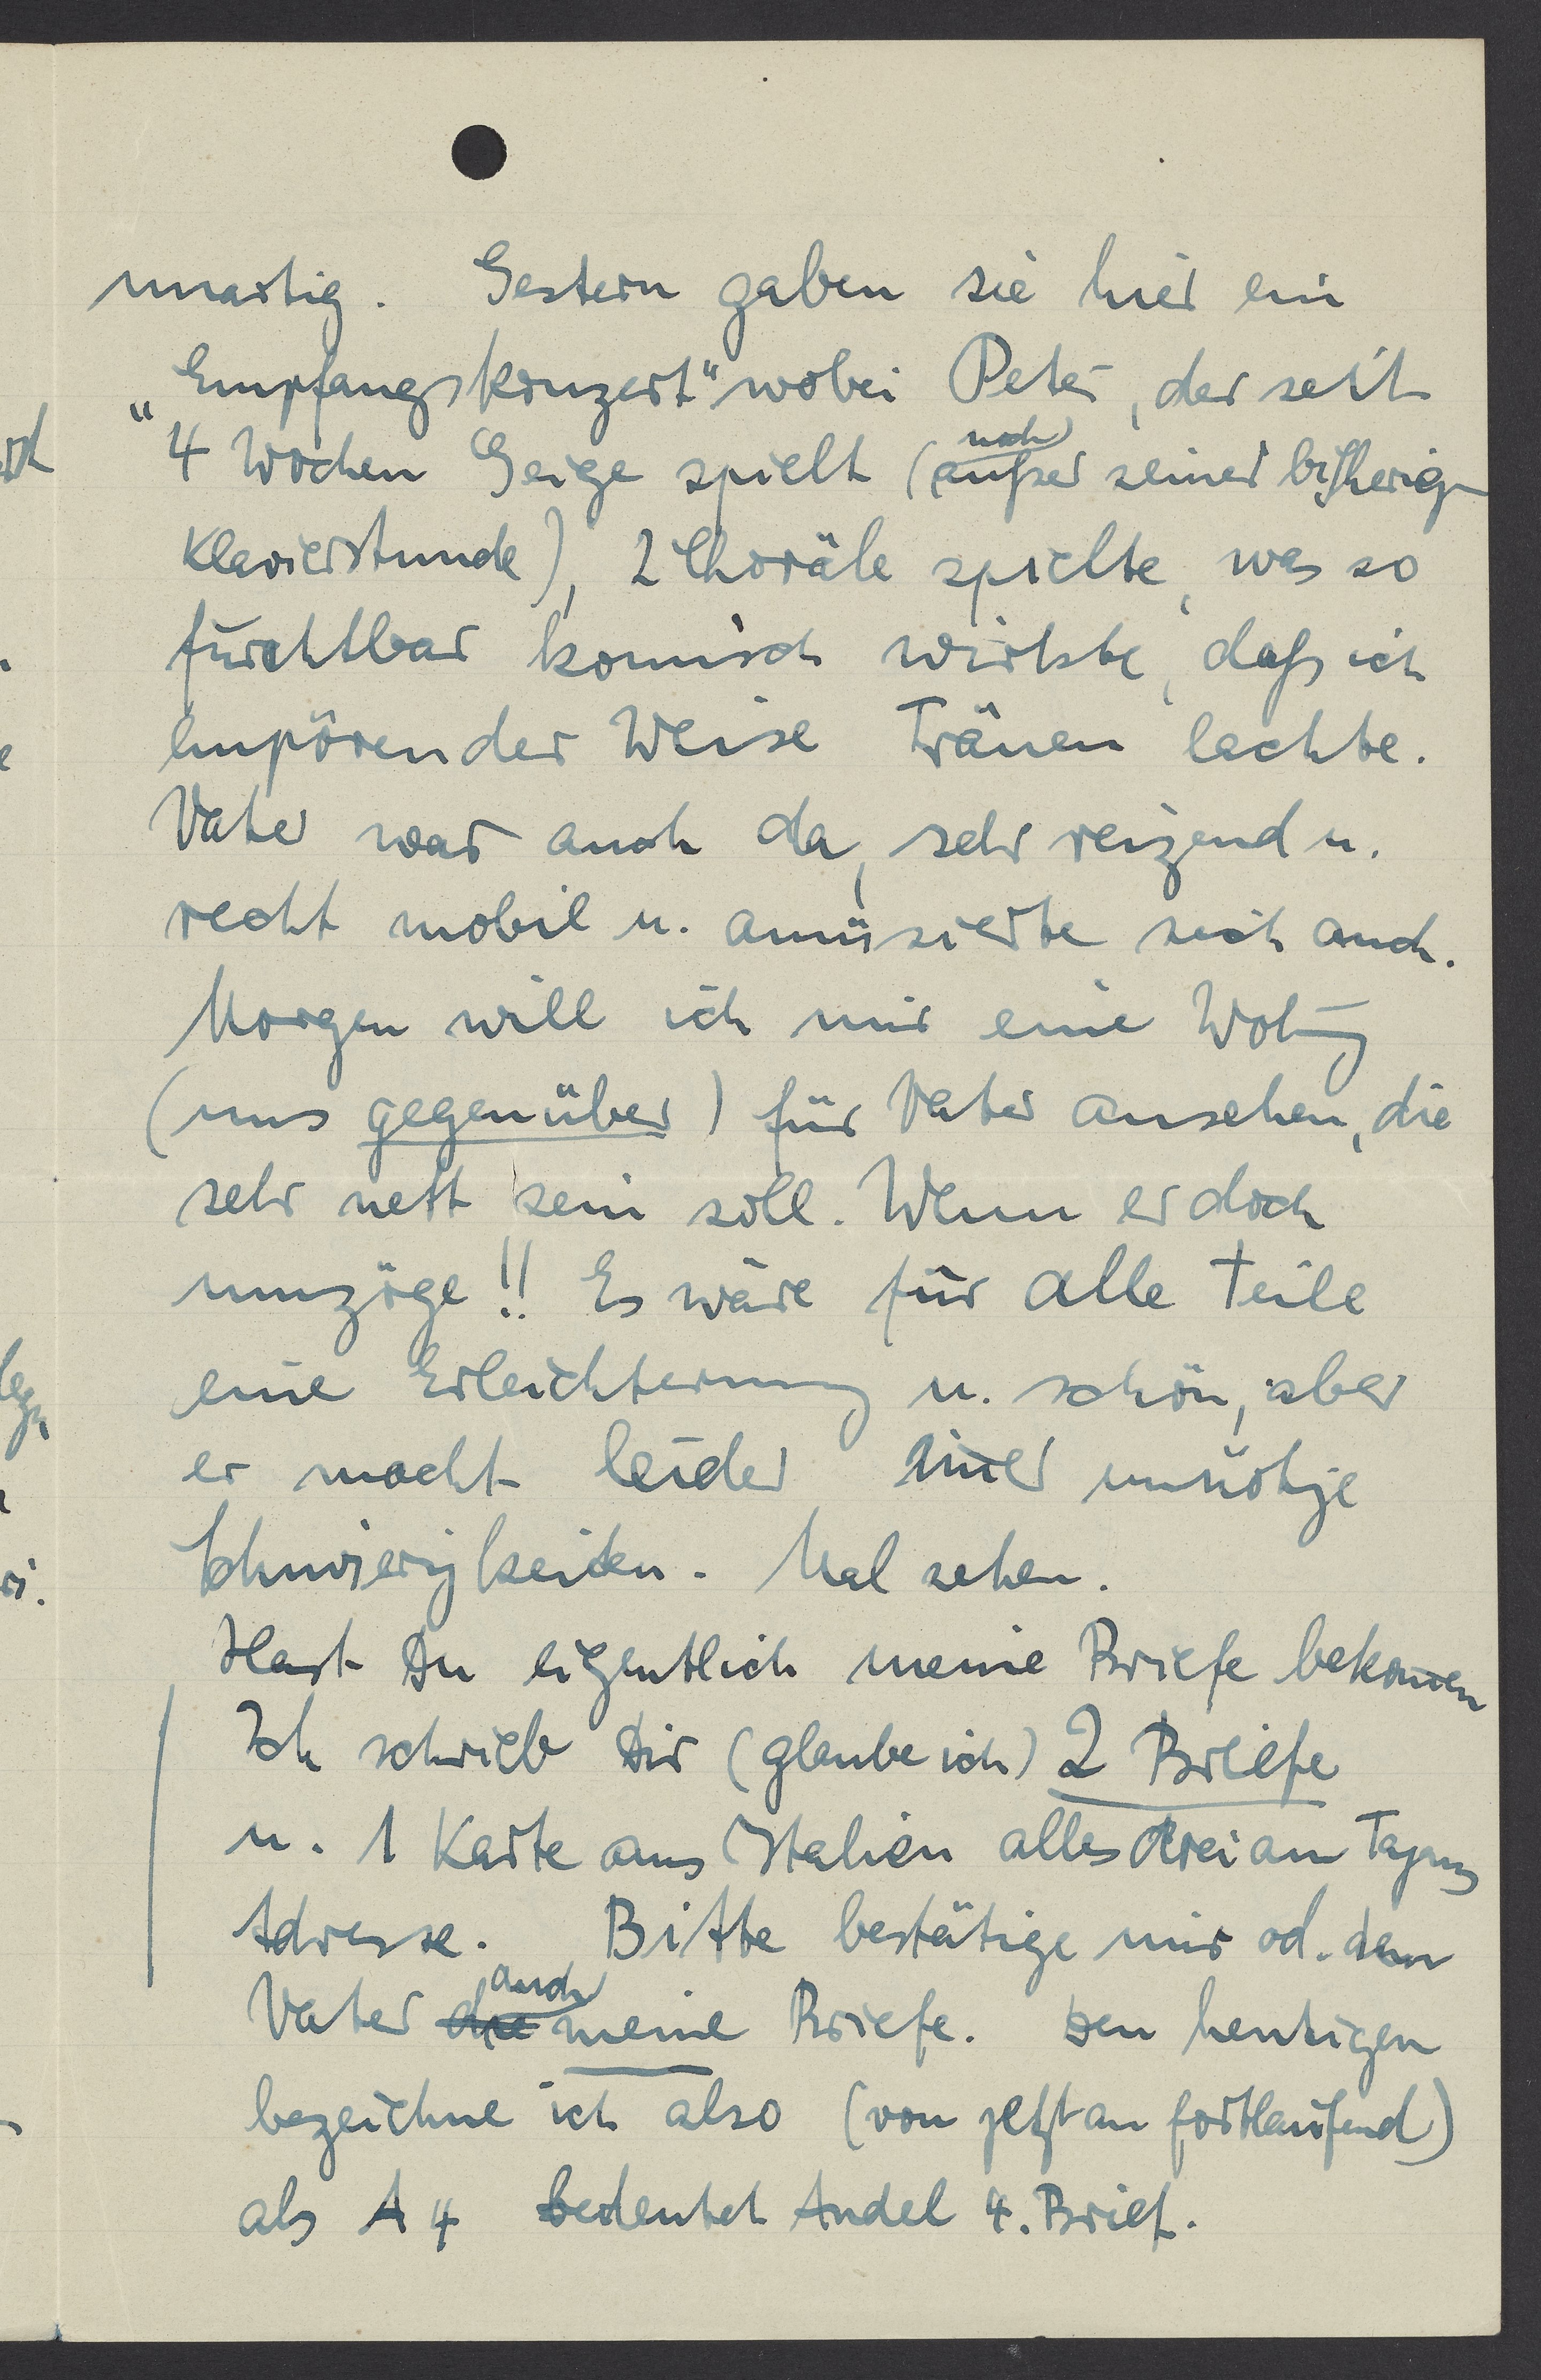 unartig. Gestern gaben sie hier ein
„Empfangskonzert" wobei Peter, der seit
4 Wochen Geige spielt (noch außer seiner bisherigen
Klavierstunde), 2 Choräle spielte, was so
furchtbar komisch wirkte, daß ich
empörender Weise Tränen lachte.
Vater war auch da, sehr reizend u.
recht mobil u. amüsierte sich auch.
Morgen will ich mir eine Wohng
(uns gegenüber) für Vater ansehen, die
sehr nett sein soll. Wenn er doch
umzöge!! Es wäre für alle Teile
eine Erleichterung u. schön, aber
er macht leider imer unnötige
Schwierigkeiten. Mal sehen.
Hast Du eigentlich meine Briefe bekomen
Ich schrieb Dir (glaube ich) 2 Briefe
u. 1 Karte aus Italien alles drei an
Adresse. Bitte bestätige mir od. dem
Vater die auch meine Briefe. Den heutigen
bezeichne ich also (von jetzt an fortlaufend)
als A 4 bedeutet Andel 4. Brief.